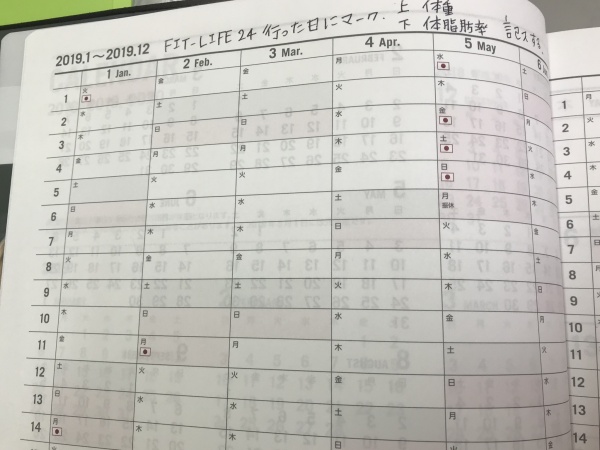 上 体重
2019.1~2019.12 FIT-LIFE 24 行った日にマーク. 下 体脂肪率 記入する.
1 Jan. 2 Feb. 3 Mar. 4 Apr. 5 May 6
1 火 金 金 月 水 土 1
2 水 土 土 火 木 日 2
3 木 日 日 水 金 月 3
4 金 月 月 木 土 火 4
5 土 火 火 金 日 水 5
6 日 水 水 土 月 振休 木 6
7 月 木 木 日 火 金 7
8 火 金 金 月 水 土 8
9 水 土 土 火 木 日 9
10 木 日 日 水 金 月 10
11 金 月 月 木 土 火 11
12 土 火 火 金 日 水 12
13 日 水 水 土 月 木 13
14 月 木 木 日 火 金 14